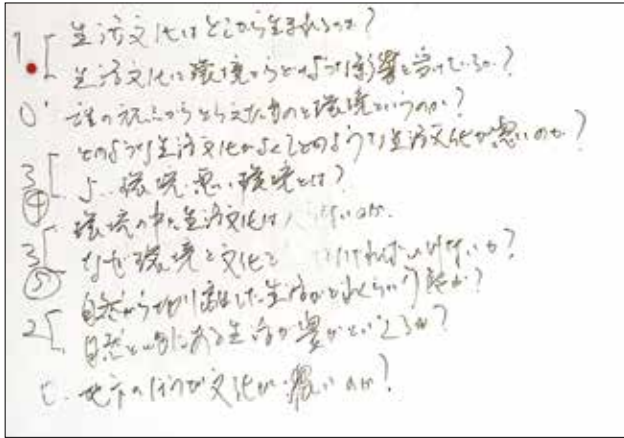 1. 生活文化はどこから生まれるのか?
生活文化は環境からどのような影響を受けているか?
0' 誰の視点からとらえたものを環境というのか?
どのような生活文化がよくてどのような生活文化が悪いのか?
3 よい環境・悪い環境とは?
④ 環境の中に生活文化は ないのか.
3 なぜ環境と文化と なければいけないか?
⑤ 自然から切り離した生活がどれくらい可能か?
2 自然と共にある生活が豊かといえるか?
地方のほうが文化が 濃いのか?